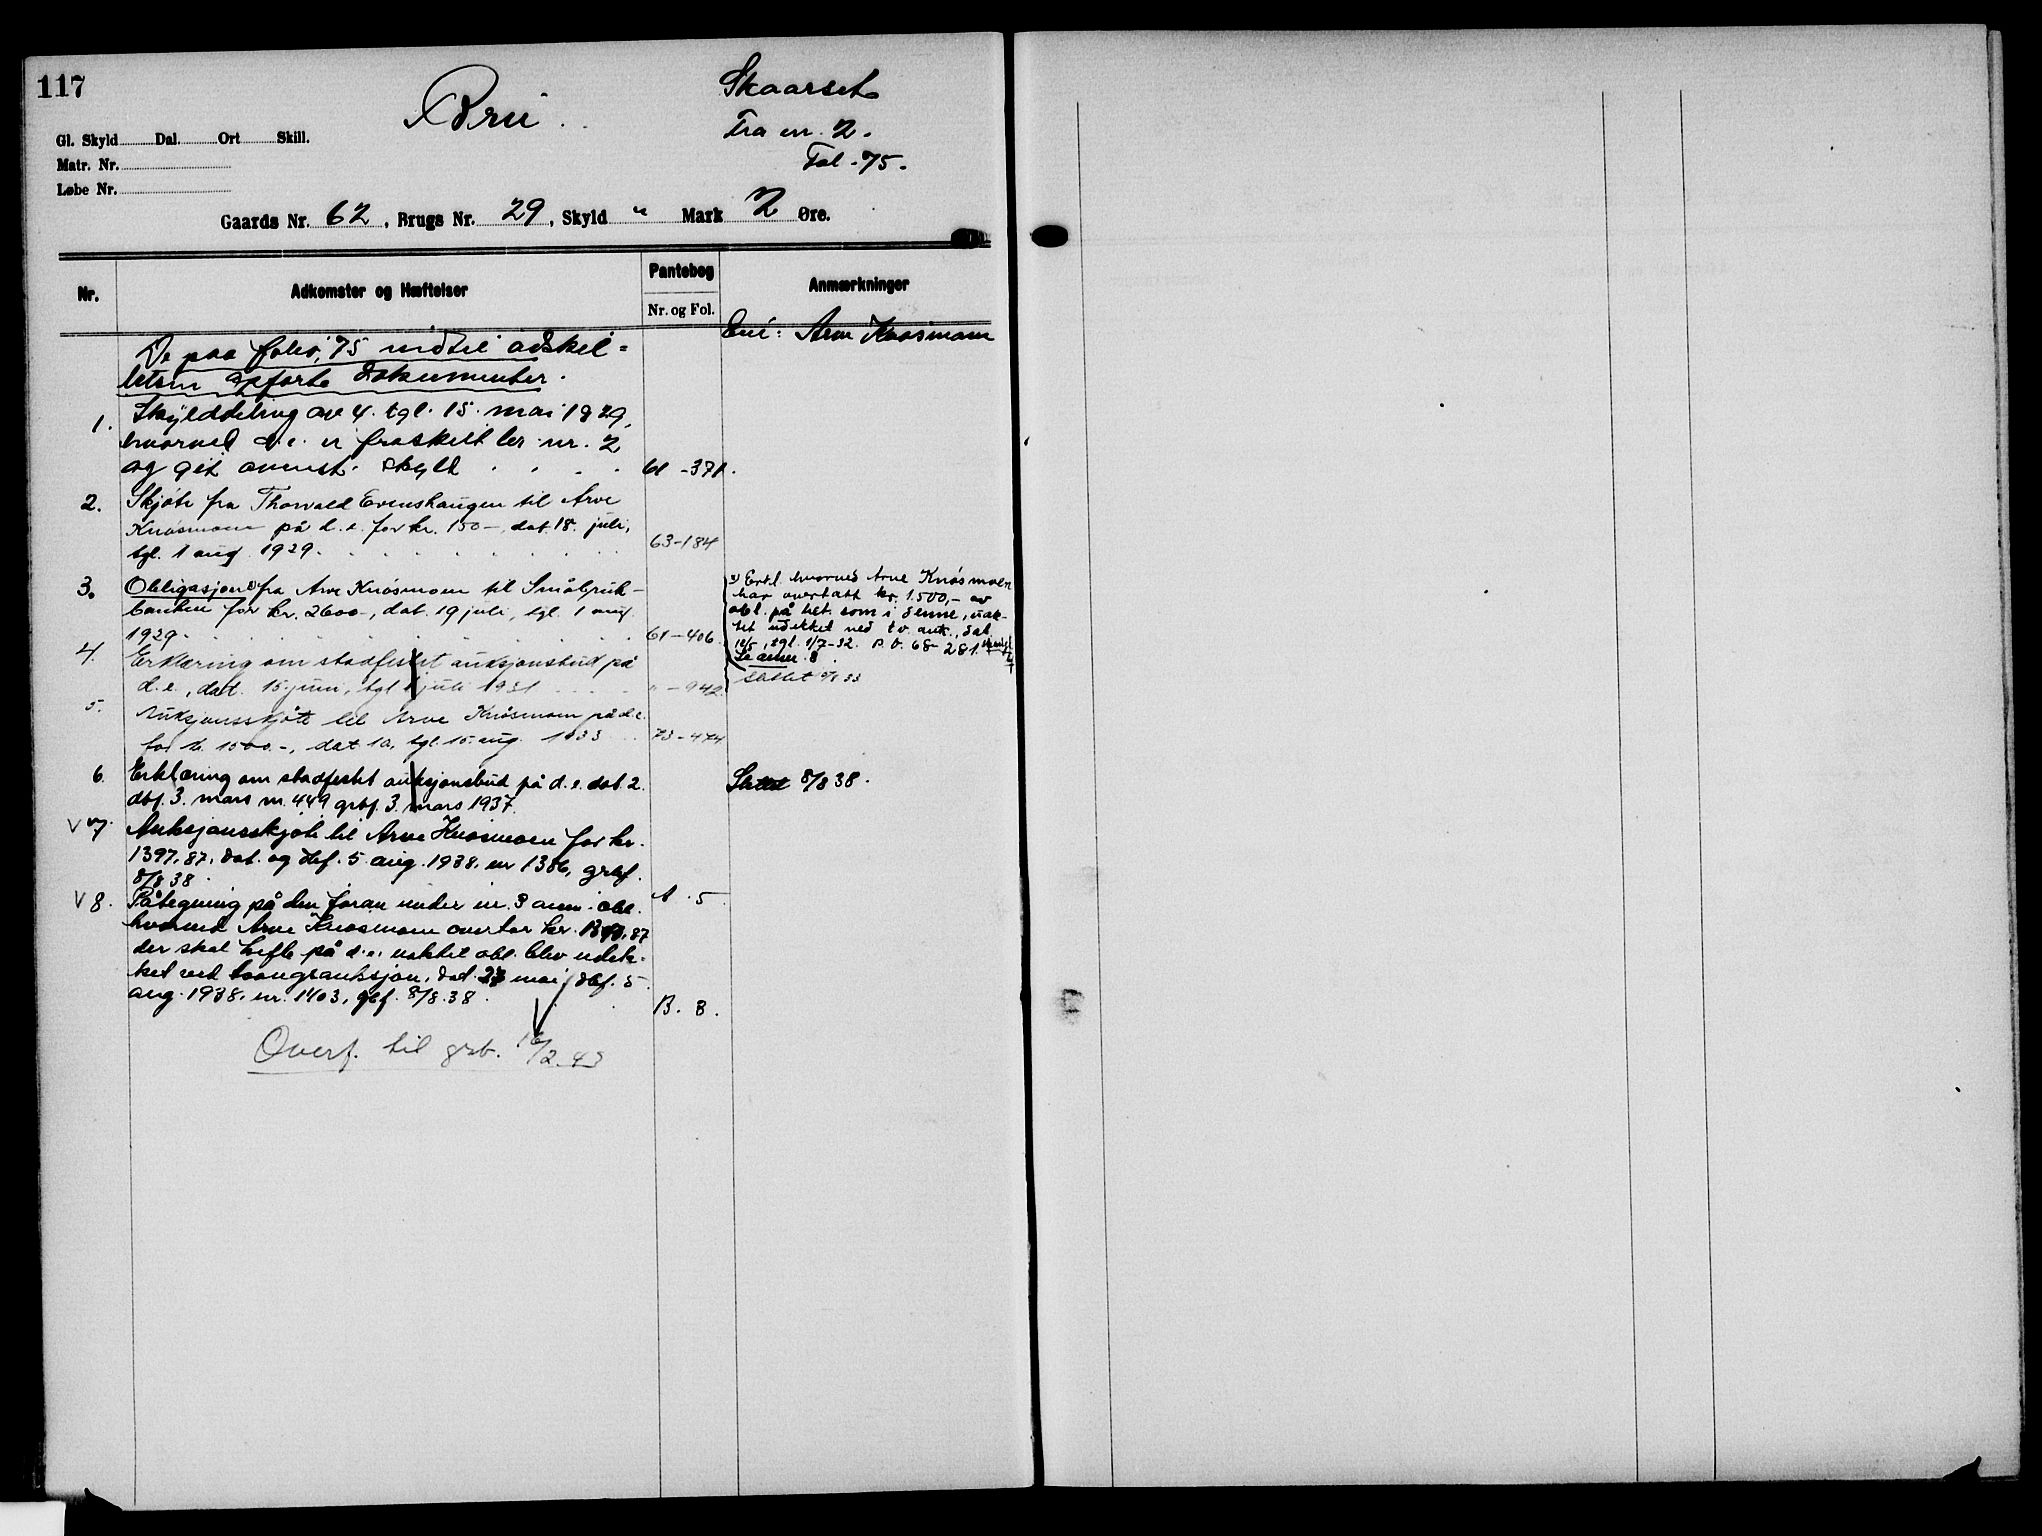 117
Bru.
Skaarset
Fra nr. 2.
Fol. 75.
Gl. Skyld Dal. Ort Skill.
Matr. Nr.
Løbe Nr.
Gaards Nr. 62, Brugs Nr. 29, Skyld " Mark 2 Øre.
Nr.
Adkomster og Hæftelser
Pantebog
Nr. og Fol.
Anmærkninger
Eni: Arne Knøsmoen
De paa folio 75 indtil adskil-
lelsen opførte dokumenter.
1. Skylddeling av 4. tgl. 15. mai 1929,
hvorved d.e. er fraskilt br. nr. 2
og git ovenst. skyld 61-371.
2. Skjøte fra Thorvald Evenshaugen til Arve
Knøsmoen på d.e. for kr. 150-, dat. 18. juli,
tgl. 1 aug 1929. 63-184
3. Obligasjon x) fra Arve Knøsmoen til Småbruk-
banken for kr. 2600-, dat. 19 juli, tgl. 1 aug.
1929. 61-406.
x) Erkl. hvorved Arve Knøsmoen
har overtatt kr. 1500,- av
obl. på bet. som i denne, uak-
tet udekket ved tv. auk., dat.
12/5, tgl. 1/7-32. P.b. 68-281.
Se anm. 8.
4. Erklæring om stadfestet auksjonsbud på
d.e., dat. 15 juni, tgl 1 juli 1931 " - 942.
Slettet 33
5. Auksjonsskjøte til Arve Knøsmoen på d.e.
for kr. 1500.-, dat. 10, tgl. 15. aug. 1933 73-474
6. Erklæring om stadfestet auksjonsbud på d.e. dat. 2.
dbf. 3. mars nr. 449 grbf. 3. mars 1937.
Slettet 8/8 38.
V 7. Auksjonsskjøte til Arve Knøsmoen for kr.
1397,87, dat. og dbf. 5. aug. 1938, nr 1386, grbf.
8/8 38. A. 5.
V 8. Påtegning på den foran under nr. 3 anm. obl.
hvorved Arve Knøsmoen overtar kr. 87
der skal hefte på d.e. uaktet obl. blev udek-
ket ved tvangsauksjon, dat. 23 mai, dbf. 5.
aug. 1938, nr. 1403, gbf. 8/8.38. B. 8.
Overf. til grb. 16/2.43